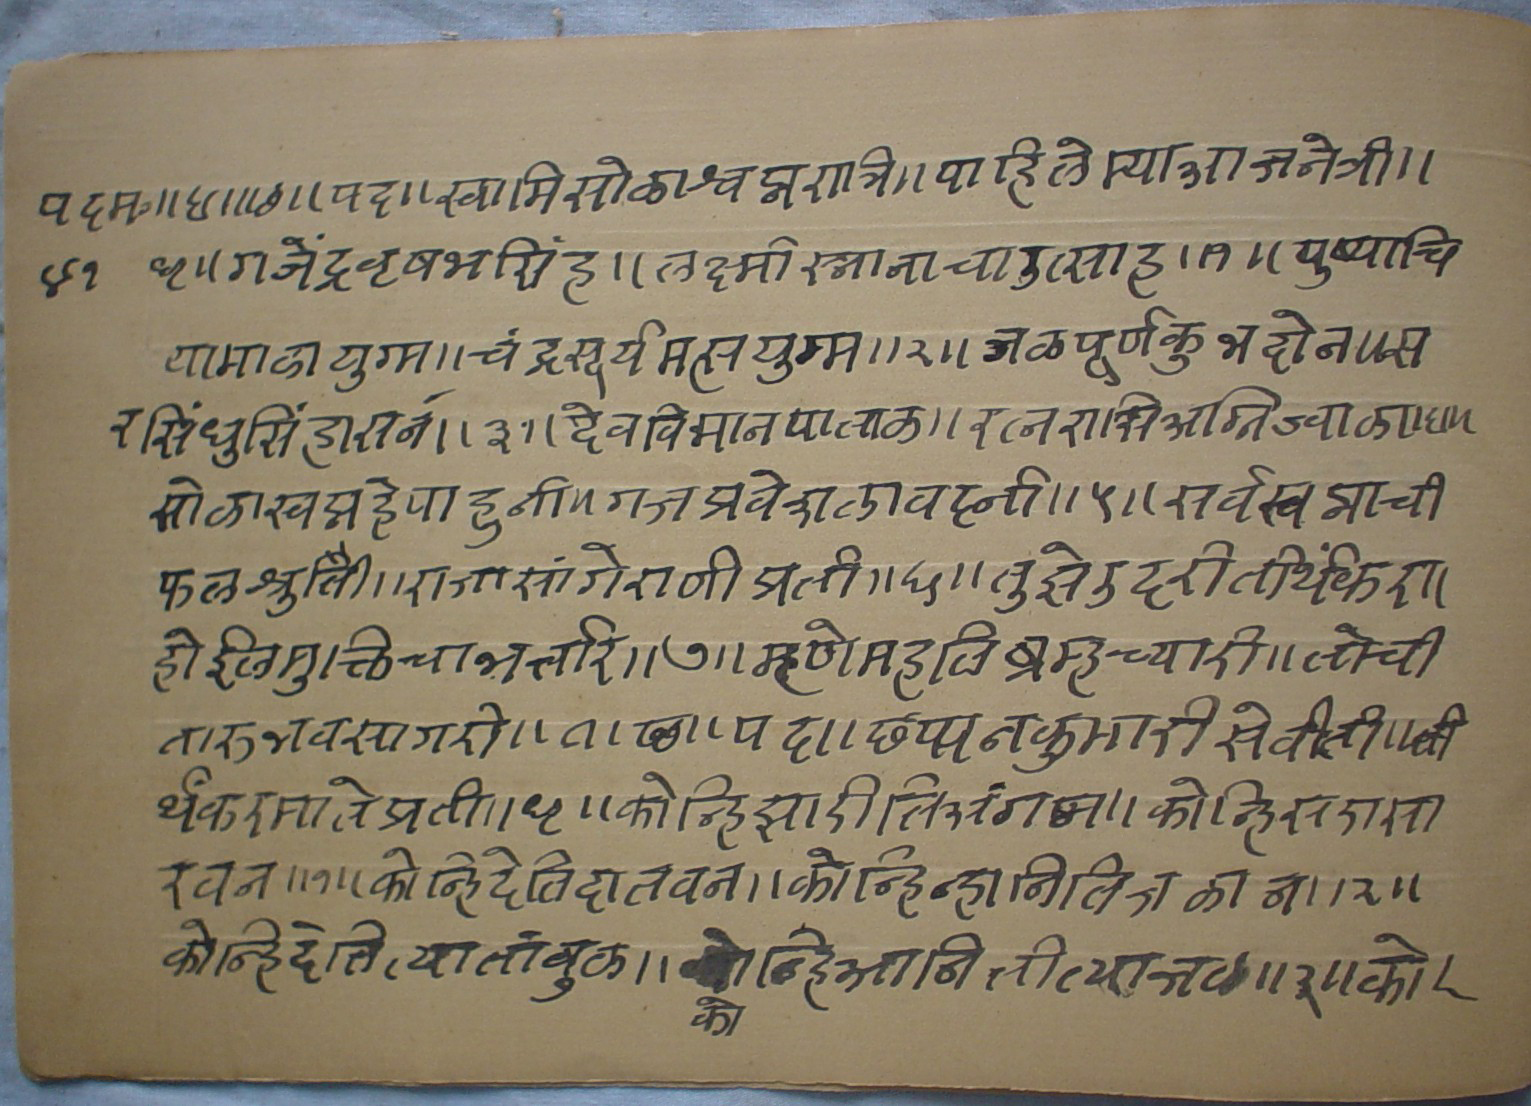 पदम॥४॥छ॥पद॥स्वामिसोळास्वप्नरात्रि॥पाहिलेम्याआजनेत्री॥
४१ धृ॥गजेंद्रवृषभसिंह॥लक्ष्मीस्नानाचाउत्साह॥१॥पुष्पाचि
यामाळायुग्म॥चंद्रसूर्यमत्सयुग्म॥२॥जळपूर्णकुभदोन॥स
रसिंधुसिंहासन॥३॥देवविमानपाताळ॥रत्नरासिअग्निज्वाळा॥४॥
सोळास्वप्नहेपाहुनी॥गजप्रवेशलावदनी॥५॥सर्वस्वप्नाची
फलश्रुति॥राजासांगेराणीप्रती॥६॥तुझेउदरीतीर्थंकरा॥
होईलमुक्तिचाभर्त्तारि॥७॥म्हणेमहतिब्रम्हच्यारी॥तोची
तारुभवसागरी॥८॥छ॥पद॥छप्पनकुमारीसेवीती॥ती
र्थंकरमातेप्रती॥धृ॥कोन्हिझाडीतिअंगन॥कोन्हिसडासा
रवन॥१॥कोन्हिदेतिदातवन॥कोन्हिन्हानितिजळान॥२॥
कोन्हिदेतित्यातांबुळ॥कोन्हिआनितीत्याजळ॥३॥को
को